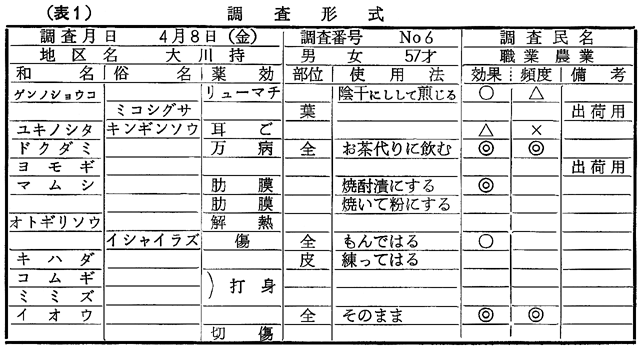 (表1) 調査形式
調査月日 4月8日(金) 調査番号 No6 調査民名
地区名 大川持 男 女 57才 職業農業
和名 俗名 薬効 部位 使用法 効果 頻度 備考
ゲンノショウコ リューマチ 陰干にしして煎じる ○ △
ミコシグサ 葉 出荷用
ユキノシタ キンギンソウ 耳ご △ ×
ドクダミ 万病 全 お茶代りに飲む ◎ ◎
ヨモギ 出荷用
マムシ 肋膜 焼酎漬にする ◎
肋膜 焼いて粉にする
オトギリソウ 解熱
イシャイラズ 傷 全 もんではる ○
キハダ 皮 練ってはる
コムギ ) 打身
ミミズ
イオウ 全 そのまま ◎ ◎
切傷